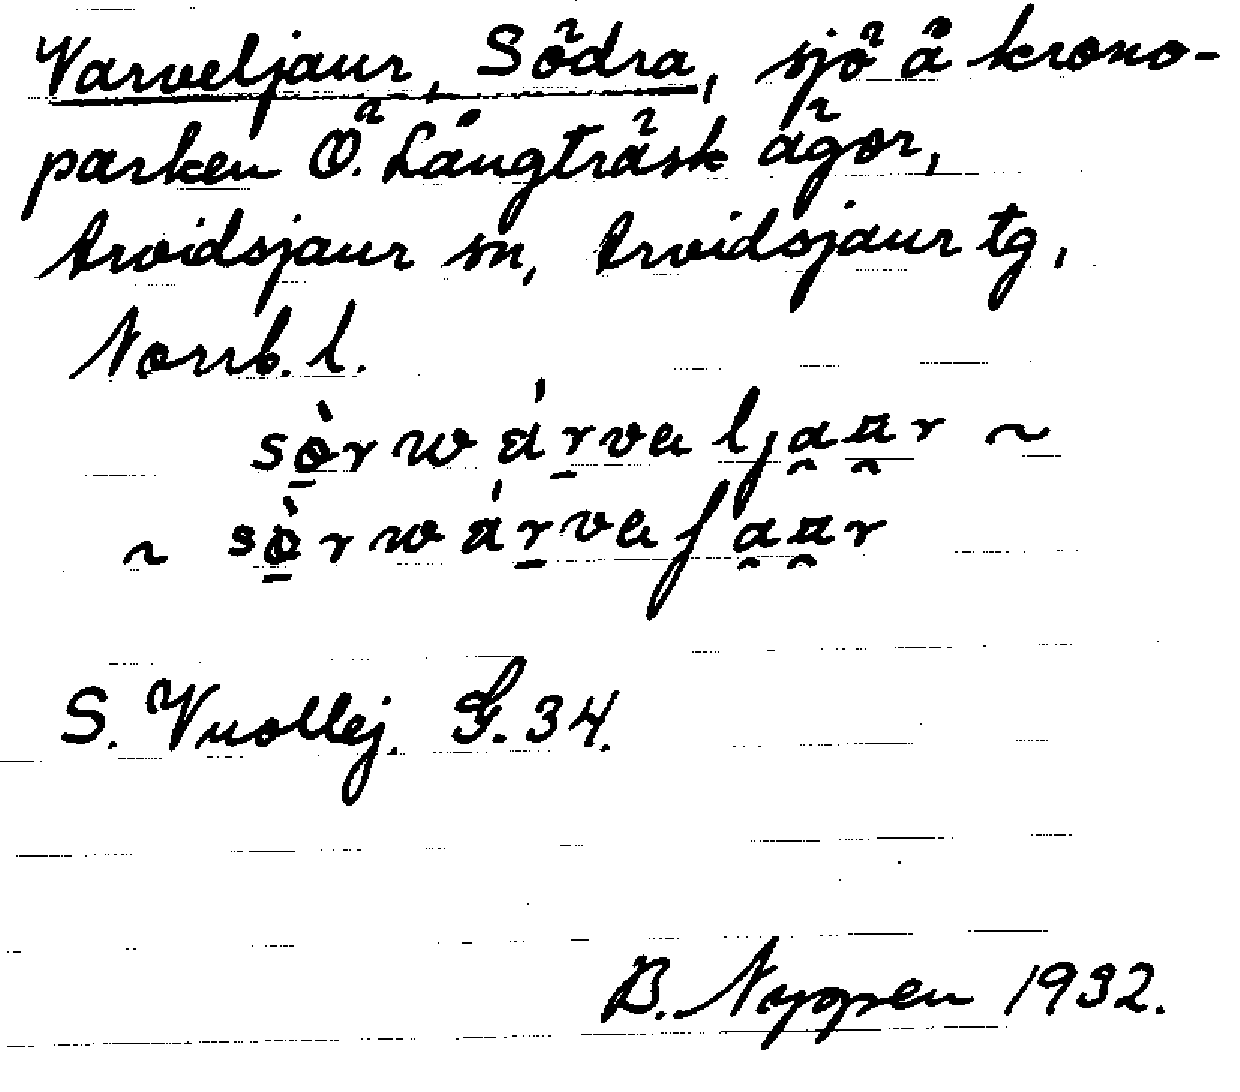 Varveljaur, Södra, sjö å krono-
parken Ö. Långträsk ägor,
Arvidsjaur sn, Arvidsjaur tg,
Norrb. l.
sö̀r wárvaljaur ~
~ sö̀r wárvaʃaur
S. Vuollej. G. 34.
B. Nyppen 1932.